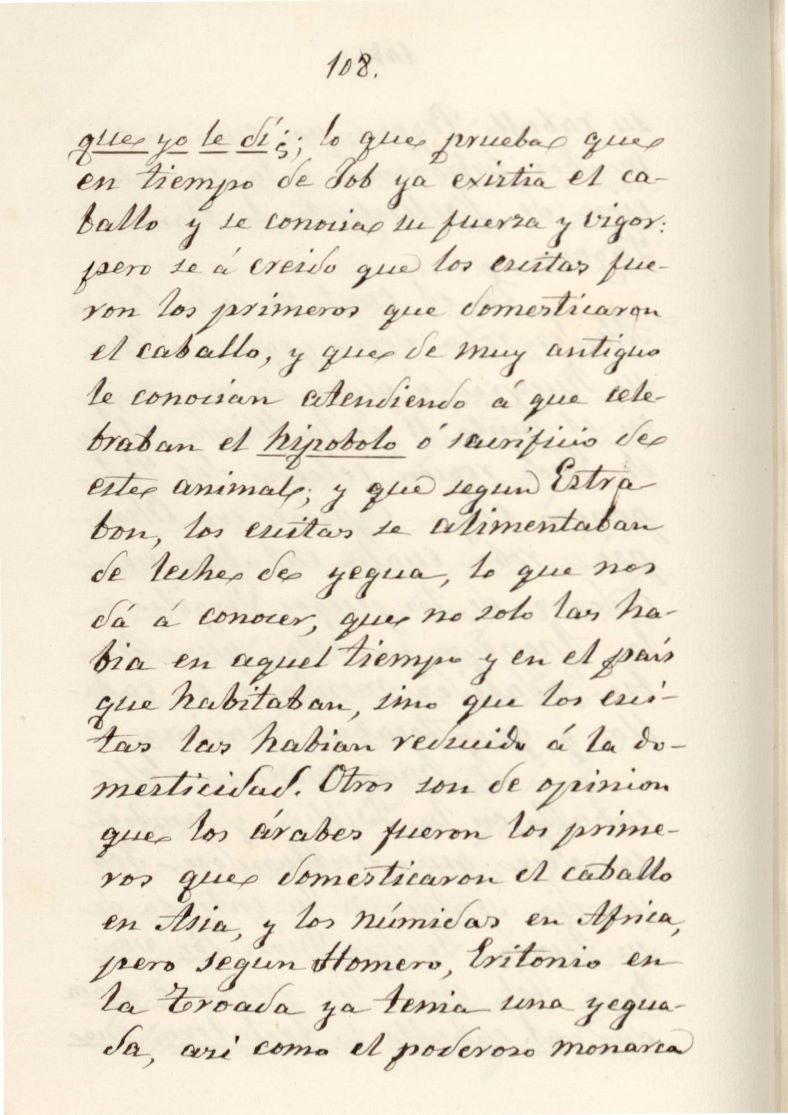 108.
que yo le dí¿; lo que prueba que
en tiempo de Job ya existia el ca-
ballo y se conocia su fuerza y vigor:
pero se á creido que los escitas fue-
ron los primeros que domesticaron
el caballo, y que de muy antiguo
le conocian atendiendo á que cele-
braban el hipobolo ó sacrificio de
este animal; y que segun Estra
bon, los escitas se alimentaban
de leche de yegua, lo que nos
dá á conocer, que no solo las ha-
bia en aquel tiempo y en el país
que habitaban, sino que los esci-
tas las habian reducido á la do-
mesticidad. Otros son de opinion
que los árabes fueron los prime-
ros que domesticaron el caballo
en Asia, y los númidas en Africa,
pero segun Homero, Eritonio en
la Troada ya tenia una yegua-
da, asi como el poderoso monarca